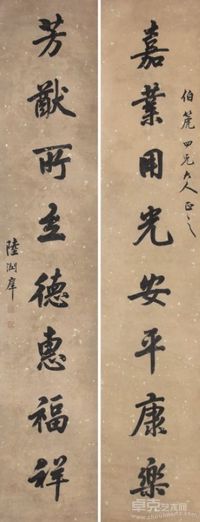 嘉業用光安平康樂
伯蔗四兄大人正之
芳猷所立德惠福祥
陸澗庠
卓克艺术网